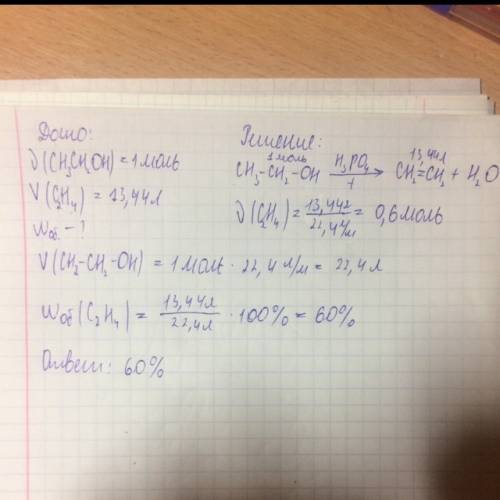 Дано:
ν(CH₃CH₂OH) = 1 моль
V(C₂H₄) = 13,44л
Wоб. - ?
Решение:
1моль 13,44л
CH₃-CH₂-OH H₃PO₄ t → CH₂=CH₂ + H₂O
ν(C₂H₄) = 13,44л / 22,4л/м = 0,6 моль
V(CH₂-CH₂-OH) = 1 моль · 22,4 л/м = 22,4 л
Wоб(C₂H₄) = 13,44л / 22,4л · 100% = 60%
Ответ: 60%